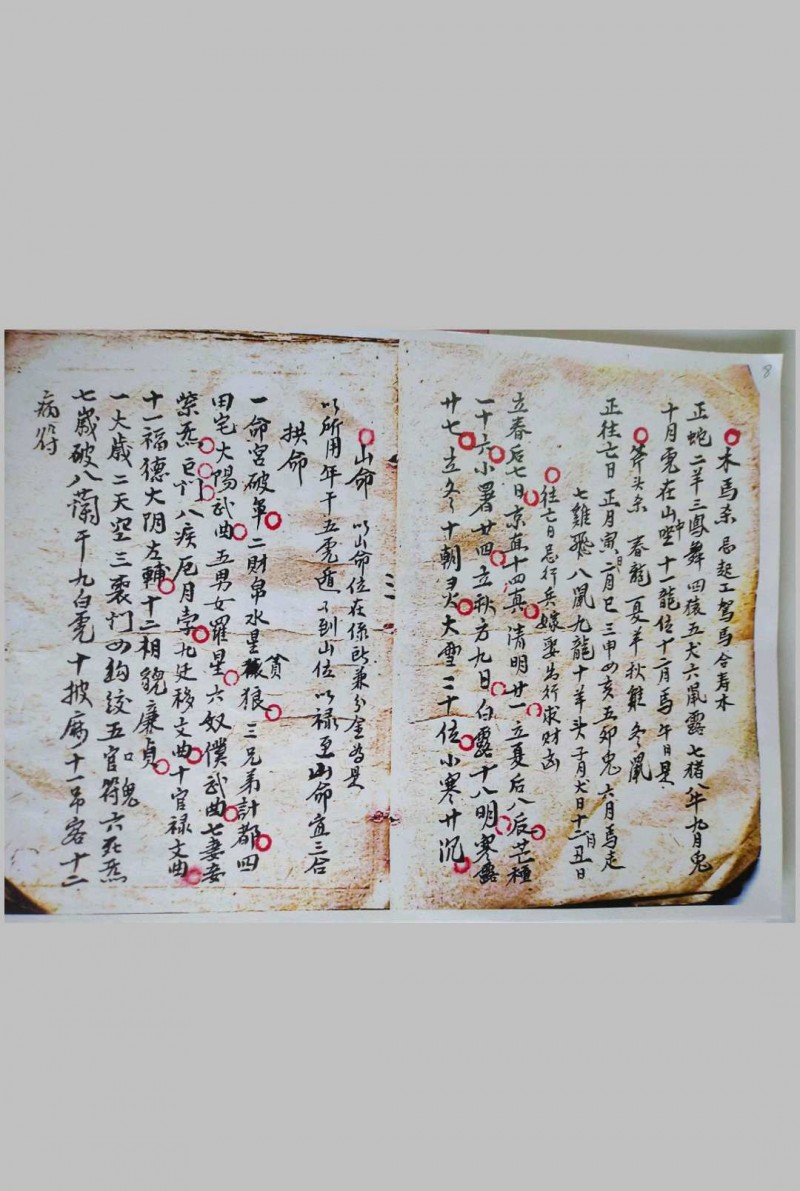 8
木馬杀忌起工駕馬合青木
正蛇二羊三鳳舞四猿五犬六鼠露七猪八牛九月兎
十月虎在山中坐十一龍位十二月馬午日是
斧头杀 春龍夏羊秋雞冬鼠
正往亡日 正月寅日二月巳三申四亥五卯兎六月馬走
七雞飛八鼠九龍十羊头子月犬日十二月丑日
往亡日忌行兵嫁娶出行求财凶
立春后七日京直十四真清明廿一立夏后八辰芒種
一十六小署廿四立秋方九日白露十八明寒露
廿七立冬十朝灵大雪二十位小寒廿沉
山命 以山命位在係所兼分金為是
以所用年干五虎遁了到山位以禄至山命宜三合
拱命
一命宮破軍二財帛水星貪狼三兄弟計都四
田宅大陽武曲五男女羅星六奴僕武曲七妻妾
紫炁巨门八疾厄月孛九迁移文曲十官禄文曲
十一福德大阴左輔十二相貌廉貞
一大歲二天空三喪门四鈎绞五官符六死炁
七歲破八蘭干九白虎十披麻十一吊客十二
病符